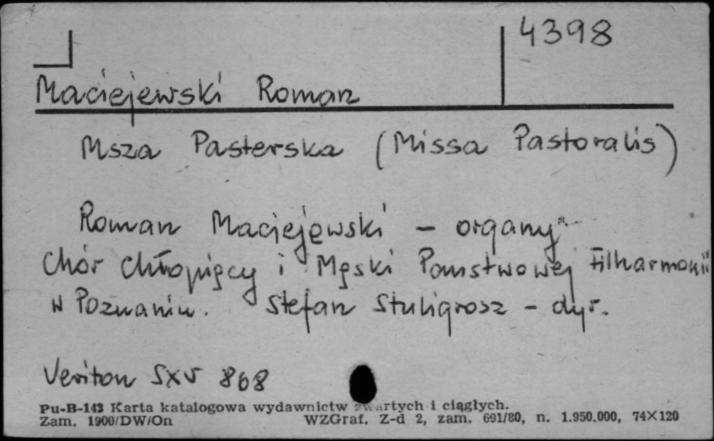 4398
Maciejewski Roman
Msza Pasterska (Missa Pastoralis)
Roman Maciejewski - organy
Chór Chłopięcy i Męski Państwowej Filharmonii
w Poznaniu. Stefan Stuligrosz - dyr.
Veriton SXV 868
Pu-B-143 Karta katalogowa wydawnictw zwartych i ciągłych.
Zam. 1900/DW/On WZGraf. Z-d 2, zam. 691/80, n. 1.950.000, 74×120